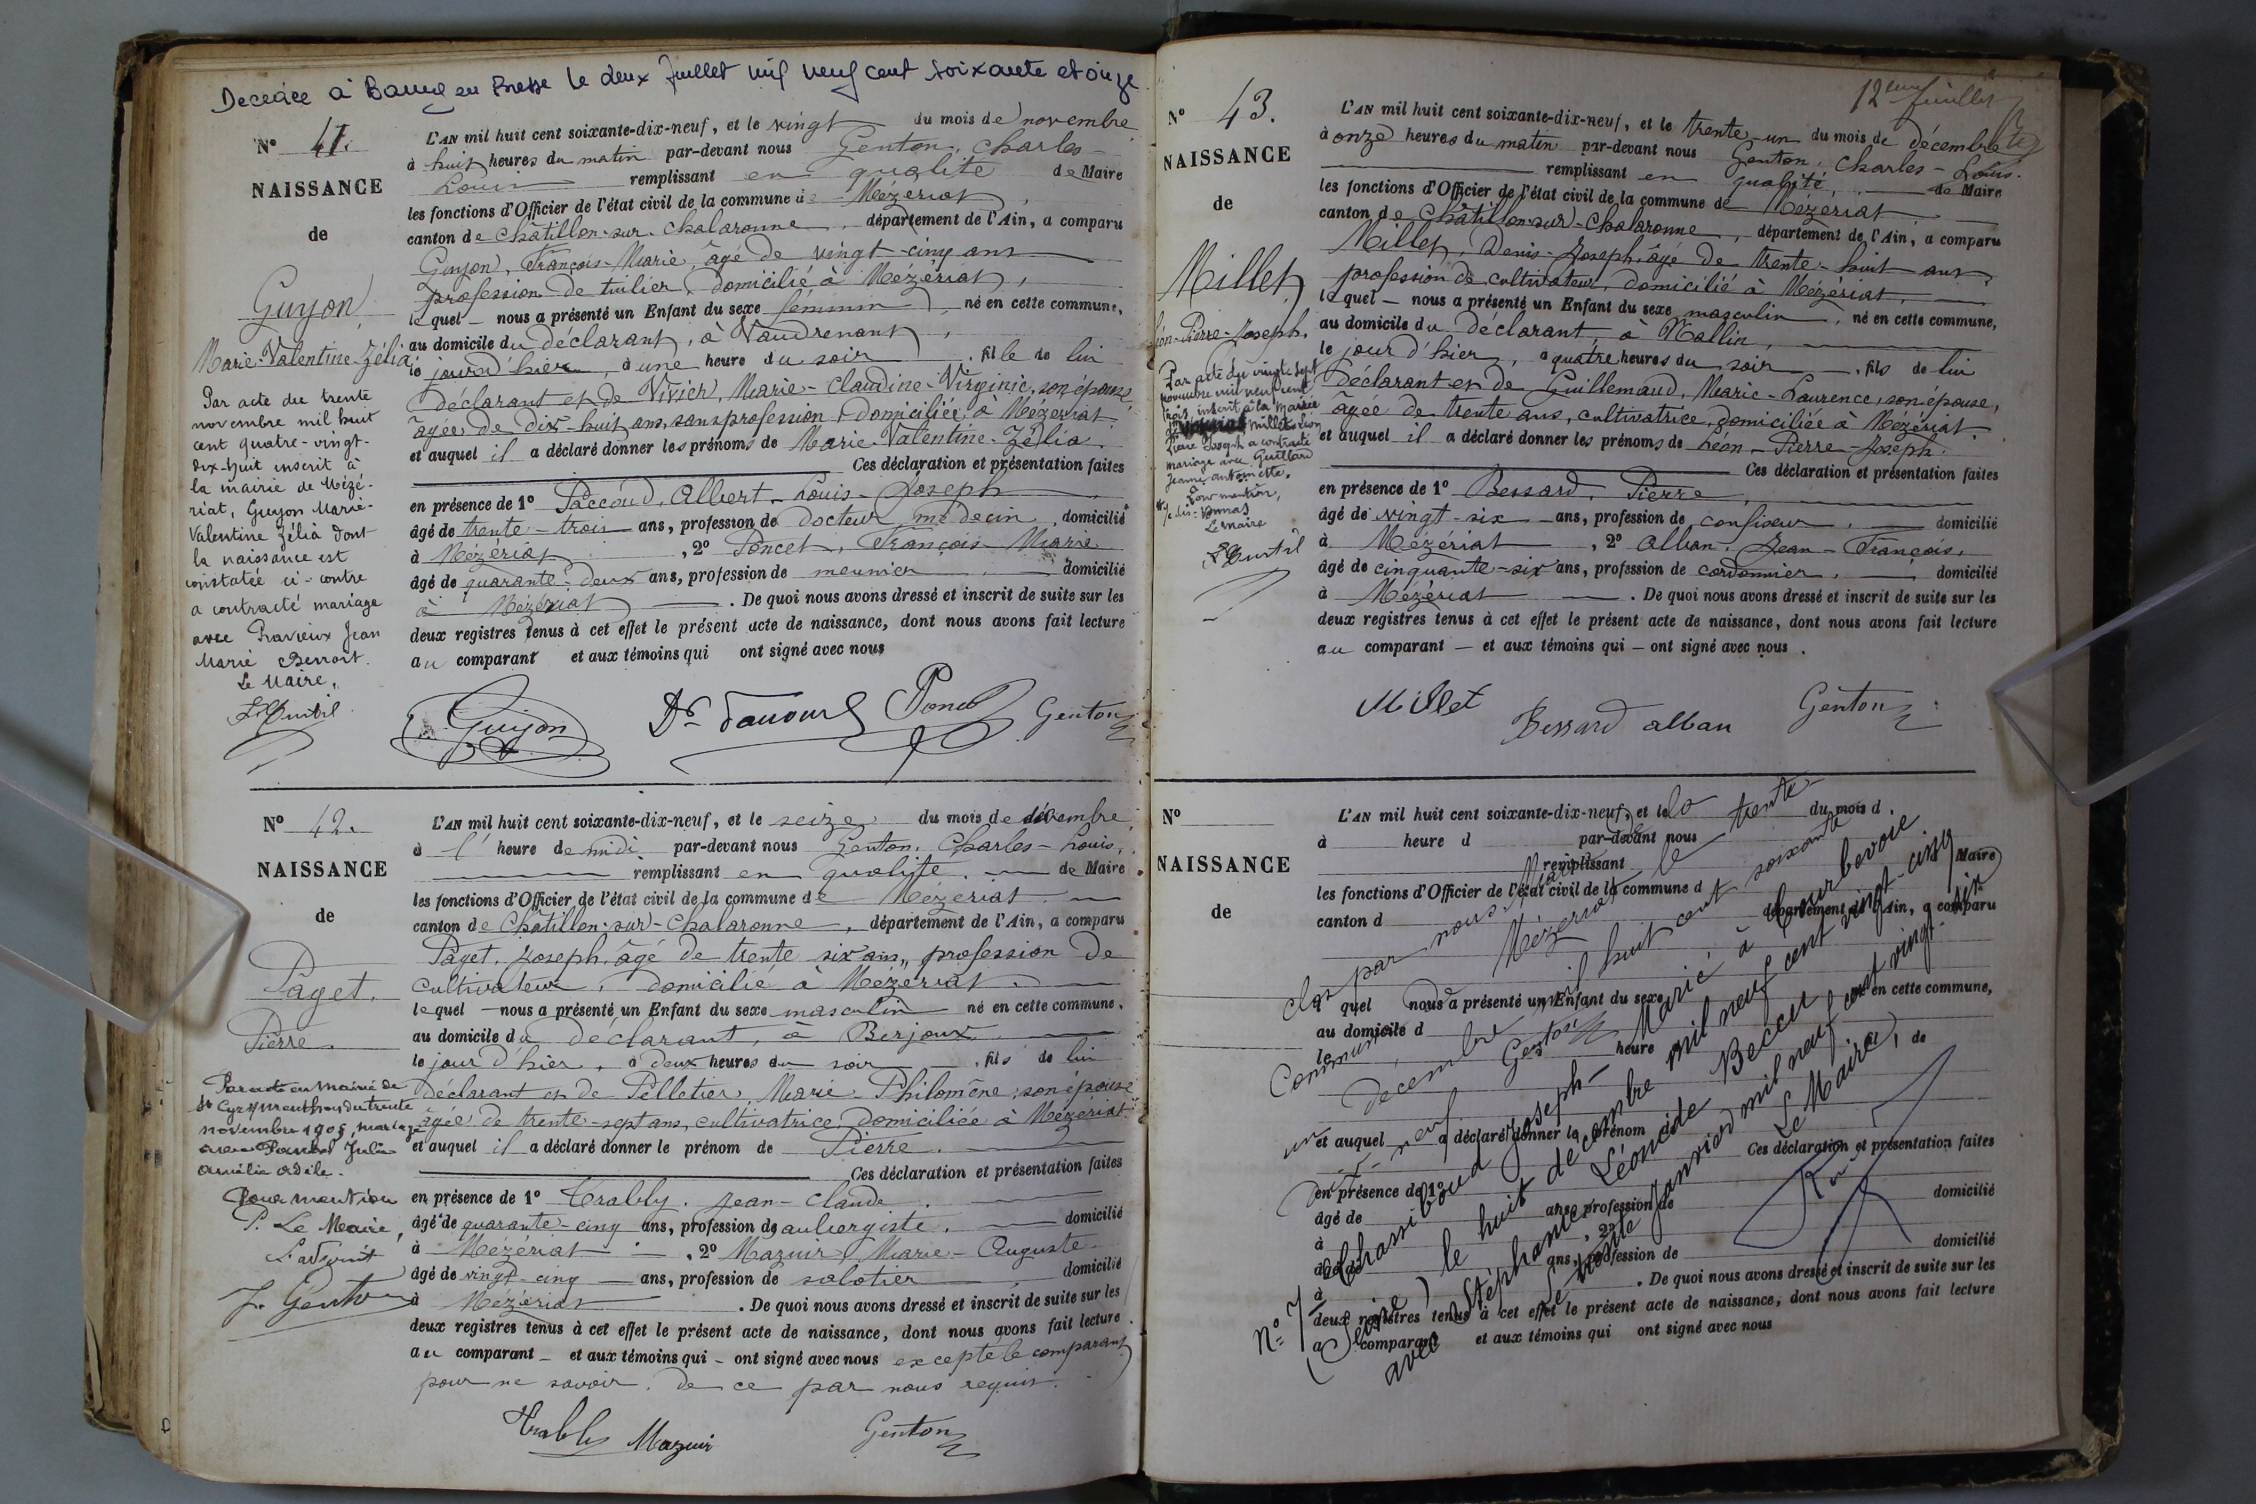 Decedee à Bourg en Bresse le deux Juillet mil neuf cent soixante et onze
N° 41.
NAISSANCE
de
Guyon,
Marie-Valentine-Zélia
Par acte du trente
novembre mil huit
cent quatre-vingt-
dix-huit inscrit à
la mairie de Mézé-
riat, Guyon Marie-
Valentine Zélia dont
la naissance est
constatée ci-contre
a contracté mariage
avec Pravieux Jean
Marie Benoit.
Le Maire,
L'AN mil huit cent soixante-dix-neuf, et le vingt du mois de novembre
à huit heures du matin par-devant nous Genton, Charles-
Louis remplissant en qualité de Maire
les fonctions d'Officier de l'état civil de la commune de Mézériat,
canton de Châtillon-sur-Chalaronne, département de l'Ain, a comparu
Guyon, François-Marie, âgé de vingt-cinq ans
profession de tuilier, domicilié à Mézériat,
lequel — nous a présenté un Enfant du sexe féminin, né en cette commune,
au domicile du déclarant, à Vaudrenant,
le jour d'hier, à une heure du soir, fille de lui
déclarant et de Vivier, Marie-Claudine-Virginie, son épouse
âgée de dix-huit ans, sans profession, domiciliée à Mézériat
et auquel il a déclaré donner les prénoms de Marie-Valentine-Zélia.
Ces déclaration et présentation faites
en présence de 1° Paccoud, Albert-Louis-Joseph
âgé de trente-trois ans, profession de docteur médecin, domicilié
à Mézériat, 2° Poncet, François-Marie
âgé de quarante-deux ans, profession de meunier, domicilié
à Mézériat. De quoi nous avons dressé et inscrit de suite sur les
deux registres tenus à cet effet le présent acte de naissance, dont nous avons fait lecture
au comparant et aux témoins qui ont signé avec nous
Guyon Dr Paccoud Poncet Genton
N° 42.
NAISSANCE
de
Paget,
Pierre.
Par acte en mairie de
St Cyr s/ Menthon du trente
novembre 1905, mariage
avec Julie
Amélie Adèle.
Pour mention
P. Le Maire,
L'adjoint
J. Genton
L'AN mil huit cent soixante-dix-neuf, et le seize du mois de décembre
à l' heure de midi par-devant nous Genton, Charles-Louis,
remplissant en qualité, de Maire
les fonctions d'Officier de l'état civil de la commune de Mézériat
canton de Châtillon-sur-Chalaronne, département de l'Ain, a comparu
Paget, Joseph, âgé de trente six ans, profession de
cultivateur, domicilié à Mézériat.
lequel — nous a présenté un Enfant du sexe masculin né en cette commune,
au domicile du déclarant, à Berjoux
le jour d'hier, à deux heures du soir, fils de lui
déclarant et de Pelletier, Marie-Philomène, son épouse
âgée de trente-sept ans, cultivatrice, domiciliée à Mézériat
et auquel il a déclaré donner le prénom de Pierre.
Ces déclaration et présentation faites
en présence de 1° Trably, Jean-Claude.
âgé de quarante-cinq ans, profession de aubergiste, domicilié
à Mézériat, 2° Mazuir, Marie-Auguste
âgé de vingt-cinq ans, profession de sabotier domicilié
à Mézériat. De quoi nous avons dressé et inscrit de suite sur les
deux registres tenus à cet effet le présent acte de naissance, dont nous avons fait lecture
au comparant — et aux témoins qui — ont signé avec nous excepté le comparant
pour ne savoir, de ce par nous requis.
Trably Mazuir Genton
12eme feuillet
N° 43.
NAISSANCE
de
Millet,
Léon-Pierre-Joseph.
Par acte du vingt sept
novembre mil neuf cent
trois, inscrit à la Mairie
de Millet Léon
Pierre Joseph a contracté
mariage avec Guillard
Jeanne Antoinette.
Pour mention,
Le Maire
L'AN mil huit cent soixante-dix-neuf, et le trente-un du mois de décembre
à onze heures du matin par-devant nous Genton, Charles-Louis.
remplissant en qualité, de Maire
les fonctions d'Officier de l'état civil de la commune de Mézériat
canton de Châtillon-sur-Chalaronne, département de l'Ain, a comparu
Millet, Denis-Joseph, âgé de trente-huit ans
profession de cultivateur, domicilié à Mézériat,
lequel — nous a présenté un Enfant du sexe masculin, né en cette commune,
au domicile du déclarant, à Mallin,
le jour d'hier, à quatre heures du soir, fils de lui
déclarant et de Guillemaud, Marie-Laurence, son épouse,
âgée de trente ans, cultivatrice, domiciliée à Mézériat.
et auquel il a déclaré donner les prénoms de Léon-Pierre-Joseph.
Ces déclaration et présentation faites
en présence de 1° Bessard, Pierre,
âgé de vingt-six ans, profession de confiseur, domicilié
à Mézériat, 2° Alban, Jean-François,
âgé de cinquante-six ans, profession de cordonnier, domicilié
à Mézériat. De quoi nous avons dressé et inscrit de suite sur les
deux registres tenus à cet effet le présent acte de naissance, dont nous avons fait lecture
au comparant — et aux témoins qui — ont signé avec nous.
Millet Bessard alban Genton
N°
NAISSANCE
de
L'AN mil huit cent soixante-dix-neuf, et le du mois d
à heure d par-devant nous
remplissant Maire
les fonctions d'Officier de l'état civil de la commune d
canton d département de l'Ain, a comparu
quel nous a présenté un Enfant du sexe né en cette commune,
au domicile d
le heure de
et auquel a déclaré donner le prénom de
Ces déclaration et présentation faites
en présence de 1°
âgé de ans, profession de domicilié
à , 2°
âgé de ans, profession de domicilié
à . De quoi nous avons dressé et inscrit de suite sur les
deux registres tenus à cet effet le présent acte de naissance, dont nous avons fait lecture
a comparant et aux témoins qui ont signé avec nous
clos par nous, Maire de la
Commune Mézériat le trente
un décembre mil huit cent soixante
dix-neuf Genton
N° 7 Chassiboud Joseph- Marié à Courbevoie
(Seine) le huit décembre mil neuf cent vingt-cinq
avec Stéphanie Léonide Beccu
Le trente Janvier mil neuf cent vingt-six
Le Maire,